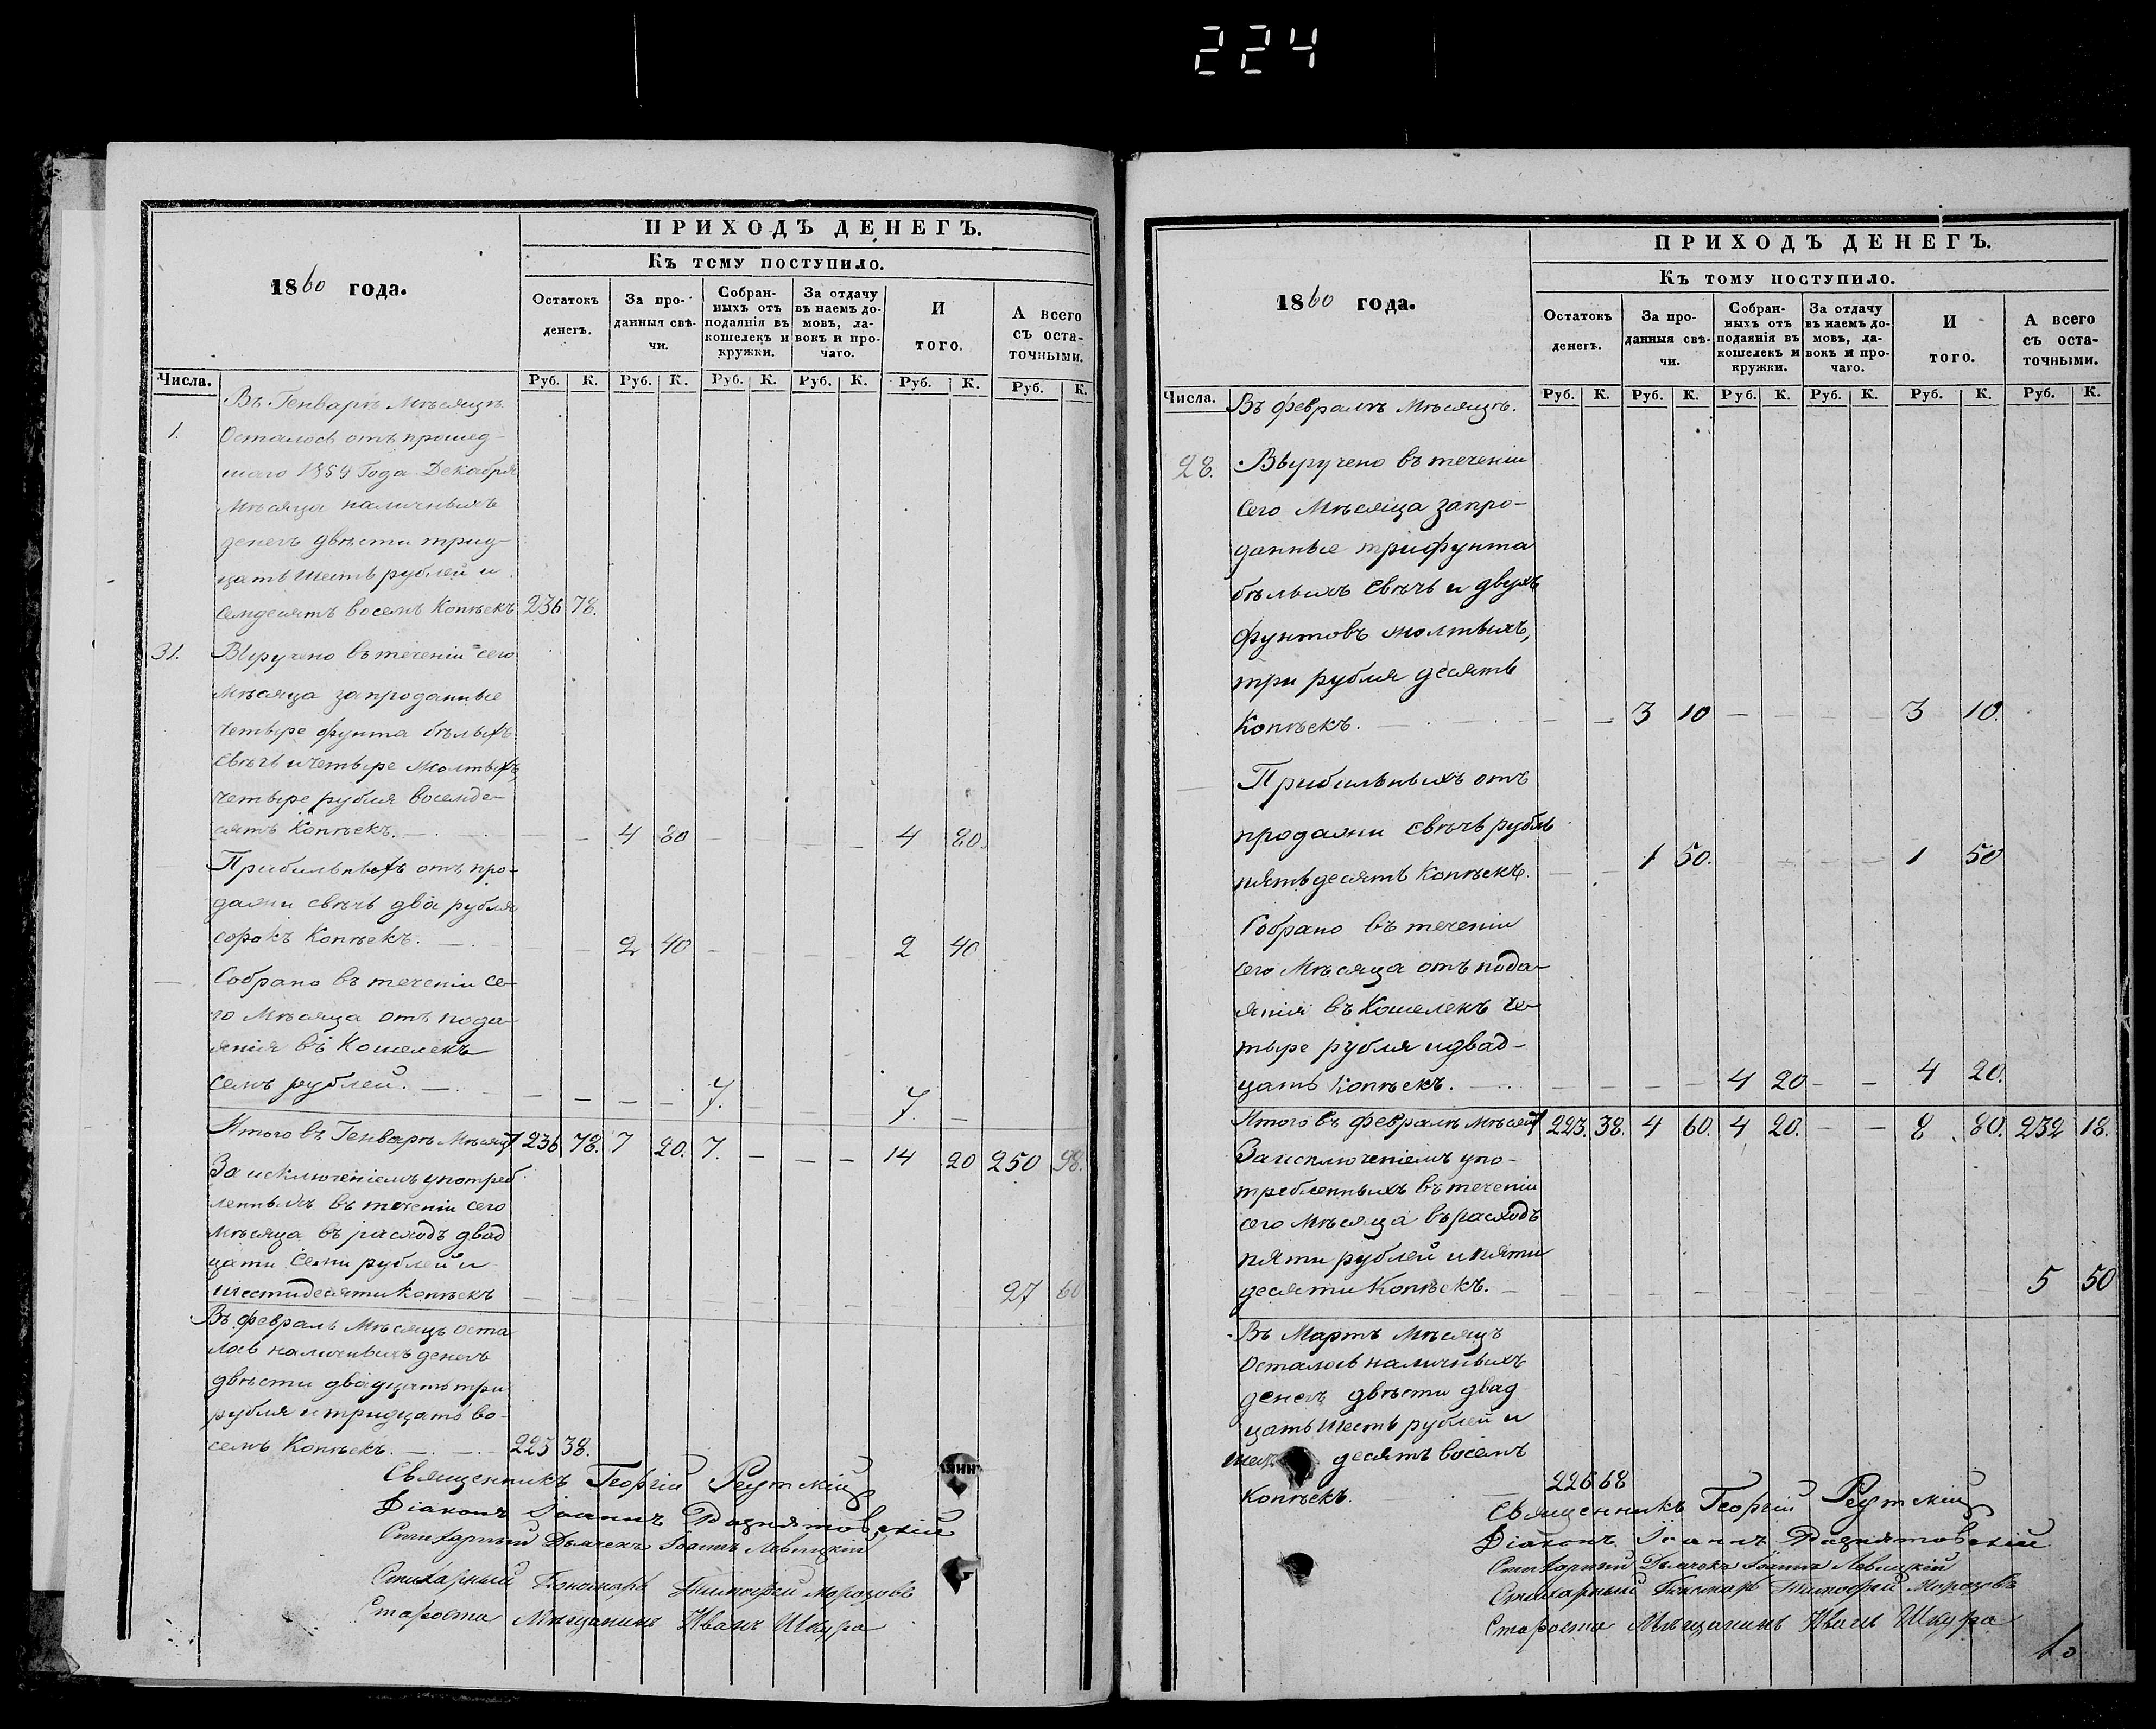 224
ПРИХОДЪ ДЕНЕГЪ.
Къ тому поступило.
1860 года.
Остатокъ денегъ.
За проданныя свѣчи.
Собранныхъ отъ подаянія въ кошелекъ и кружки.
За отдачу въ наемъ домовъ, лавокъ и прочаго.
И того.
А всего съ остаточными.
Числа. Руб. К. Руб. К. Руб. К. Руб. К. Руб. К. Руб. К.
Въ Генварѣ Мѣсяцѣ
1. Осталось отъ прошед-
шаго 1859 Года Декабря
Мѣсяца наличныхъ
денегъ двѣсти трид-
цать шесть рублей и
семдесятъ восемь Копѣекъ 236 78.
31. Выручено въ теченіи сего
Мѣсяца запроданные
четыре фунта бѣлыхъ
свѣчъ и четыре жолтыхъ,
четыре рубля восемде-
сятъ Копѣекъ. — 4 80 — 4 80.
Прибыльныхъ отъ про-
дажи свѣчъ два рубля
сорокъ Копѣекъ. — 2 40 — 2 40
— Собрано въ теченіи се-
го Мѣсяца отъ пода-
янія въ Кошелекъ
семь рублей. — 7. — 7. —
Итого въ Генварѣ Мѣсяцѣ 236 78. 7 20. 7. — — — 14 20 250 98.
За исключеніемъ употреб
ленныхъ въ теченіи сего
мѣсяца въ расходъ двад
цати семи рублей и
шестидесяти Копѣекъ — 27 60
Въ февраль Мѣсяцъ оста
лось наличныхъ денегъ
двѣсти двадцать три
рубля и тридцать во-
семь Копѣекъ. — 223 38.
Священникъ Георгій Реутскій
Діаконъ Іоаннъ
Стихарный Дьячекъ Іоаннъ Левицкій
Стихарный Пономарь Тимофей Морозовъ
Староста Мѣщанинъ Иванъ Шкура
ПРИХОДЪ ДЕНЕГЪ.
Къ тому поступило.
1860 года.
Остатокъ денегъ.
За проданныя свѣчи.
Собранныхъ отъ подаянія въ кошелекъ и кружки.
За отдачу въ наемъ домовъ, лавокъ и прочаго.
И того.
А всего съ остаточными.
Числа. Руб. К. Руб. К. Руб. К. Руб. К. Руб. К. Руб. К.
Въ февралѣ Мѣсяцѣ.
28. Выручено въ теченіи
сего Мѣсяца запро-
данные три фунта
бѣлыхъ свѣчъ и двухъ
фунтовъ жолтыхъ,
три рубля десять
Копѣекъ. — 3 10 — 3 10.
Прибыльныхъ отъ
продажи свѣчъ рубль
пятьдесятъ Копѣекъ. — 1 50. — 1 50
Собрано въ теченіи
сего Мѣсяца отъ пода-
янія въ Кошелекъ че-
тыре рубля и двад-
цать Копѣекъ. — 4 20 — 4 20.
Итого въ февралѣ Мѣсяцѣ 223. 38. 4 60. 4 20. — — 8 80. 232 18.
За исключеніемъ упо-
требленныхъ въ теченіи
сего Мѣсяца въ расходъ
пяти рублей и пяти
десяти Копѣекъ. — 5 50
Въ Мартъ Мѣсяцъ
Осталось наличныхъ
денегъ двѣсти двад
цать шесть рублей и
десятъ восемь
Копѣекъ. 226 68
Священникъ Георгій Реутскій
Діаконъ Іоаннъ
Стихарный Дьячекъ Іоаннъ Левицкій
Стихарный Пономарь Тимофей Морозовъ
Староста Мѣщанинъ Иванъ Шкура